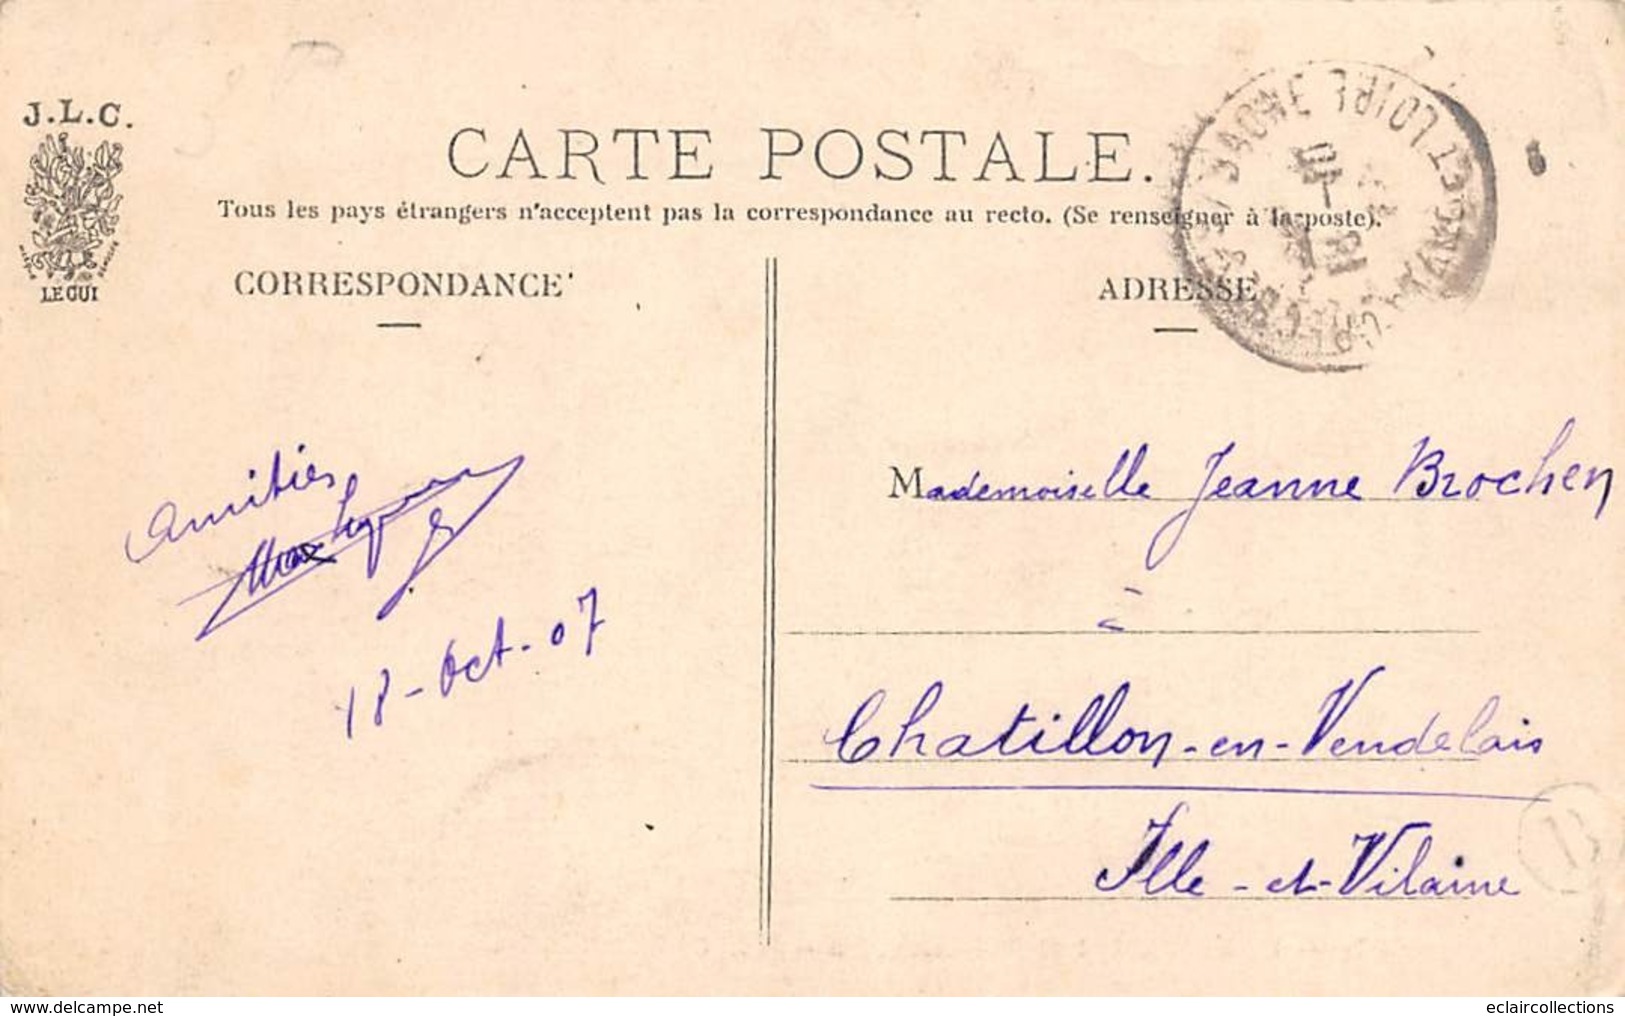 J.L.C.
LE GUI
CARTE POSTALE.
Tous les pays étrangers n'acceptent pas la correspondance au recto. (Se renseigner à la poste).
CORRESPONDANCE
ADRESSE
Amitiés
18 - Oct. 07
Mademoiselle Jeanne Brochen
à
Chatillon-en-Vendelais
Ille-et-Vilaine
B
www.delcampe.net
eclaircollections